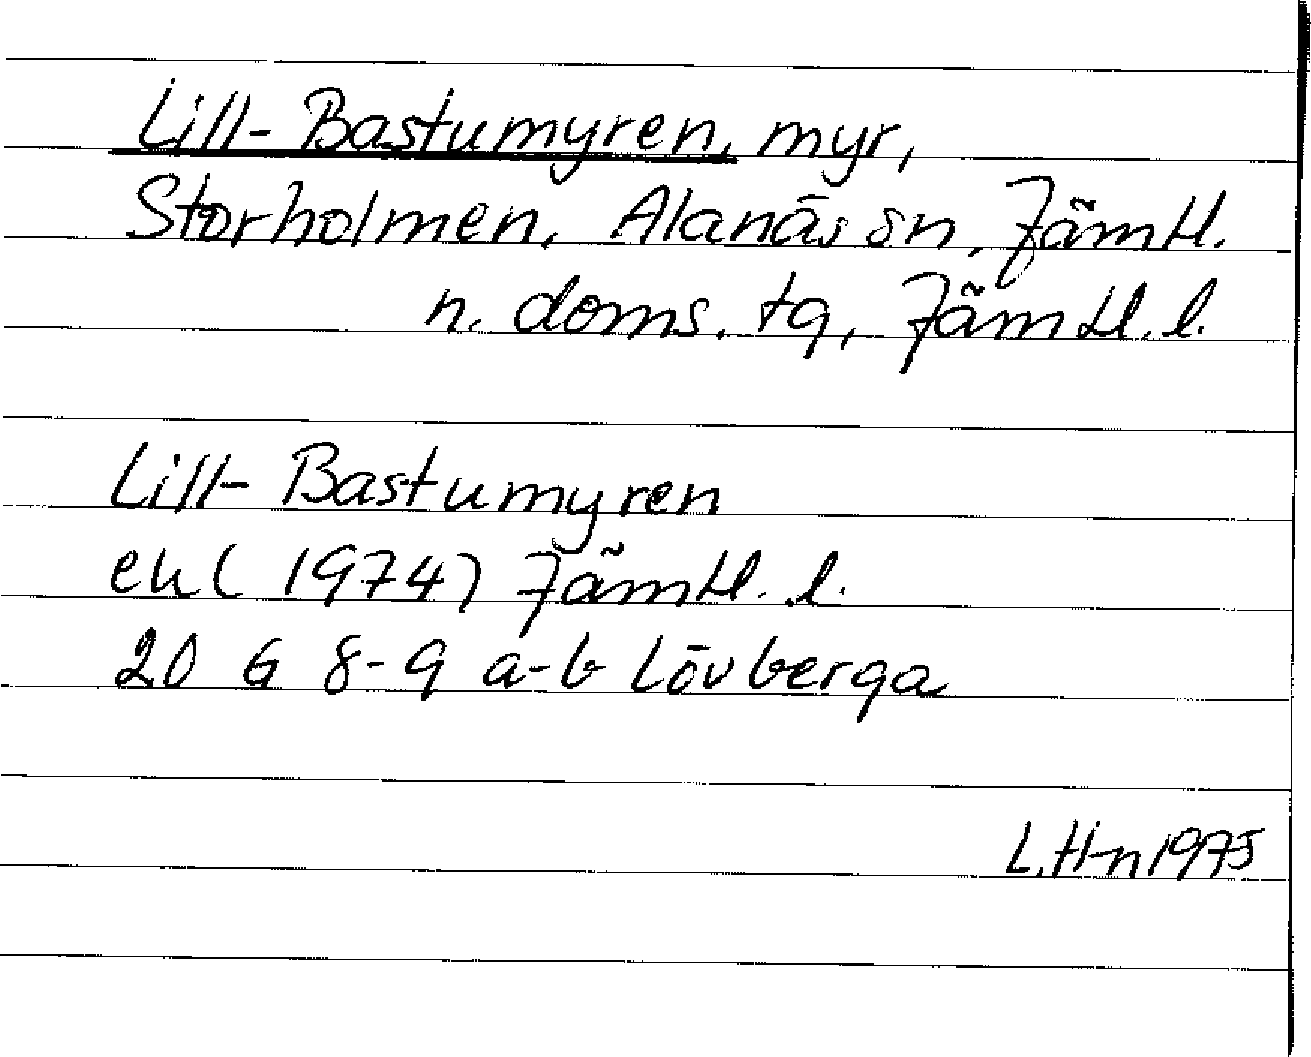 Lill-Bastumyren, myr,
Storholmen, Alanäs sn, Jämtl.
n. doms. tg, Jämtl. l.
Lill-Bastumyren
ek (1974) Jämtl. l.
20 G 8-9 a-b Lövberga
L. H-n 1975